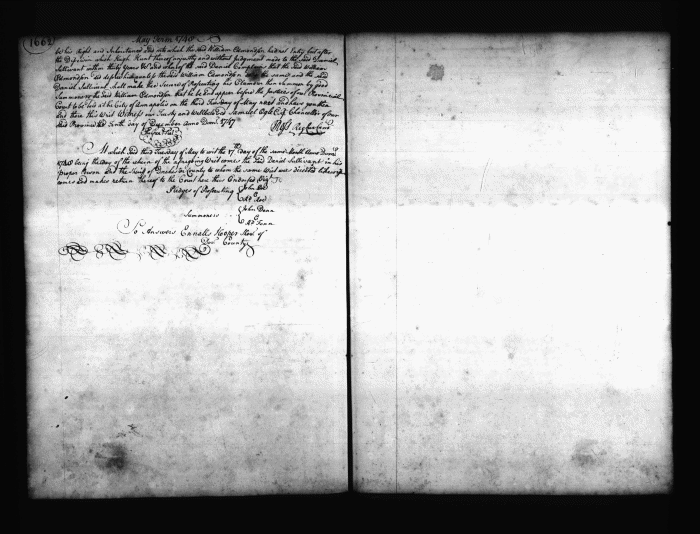 1662
May Term 1748
be his Right and Inheritance And into which the said William Edmondson hath not Entry but after
the Disseisin which Hugh Hunt thereof unjustly and without Judgement made to the said Daniel
Sullivant within thirty Years &c And whereof the said Daniel Complains that the said William
Edmondson as deforceth And if the said Daniel
Daniel Sullivant shall make thee Secure of Prosecuting his Clamour then Summon by good
Summoners the said William Edmondson that he be and appear before the Justices of our Provincial
Court to be held at the City of Annapolis on the third Tuesday of May next And have you then
and there this Writ Witness our Trusty and Wellbeloved Samuel Ogle Esq Chancellor of our
said Province the Tenth day of December Anno Domi 1747
At which said third Tuesday of May to wit the 17th day of the same Month Anno Domi
1748 being the day of the return of the aforegoing Writ comes the said Daniel Sullivant in his
proper Person And the Sheriff of Dorchester County to whom the same Writ was directed likewise
comes and makes return thereof to the Court here thus Endorsed Viz
Pledges of Prosecuting John Doe
&
Rd Roe
Summoners John Denn
&
Rd Fenn
So Answers Ennalls Hooper Sher of
Dor County